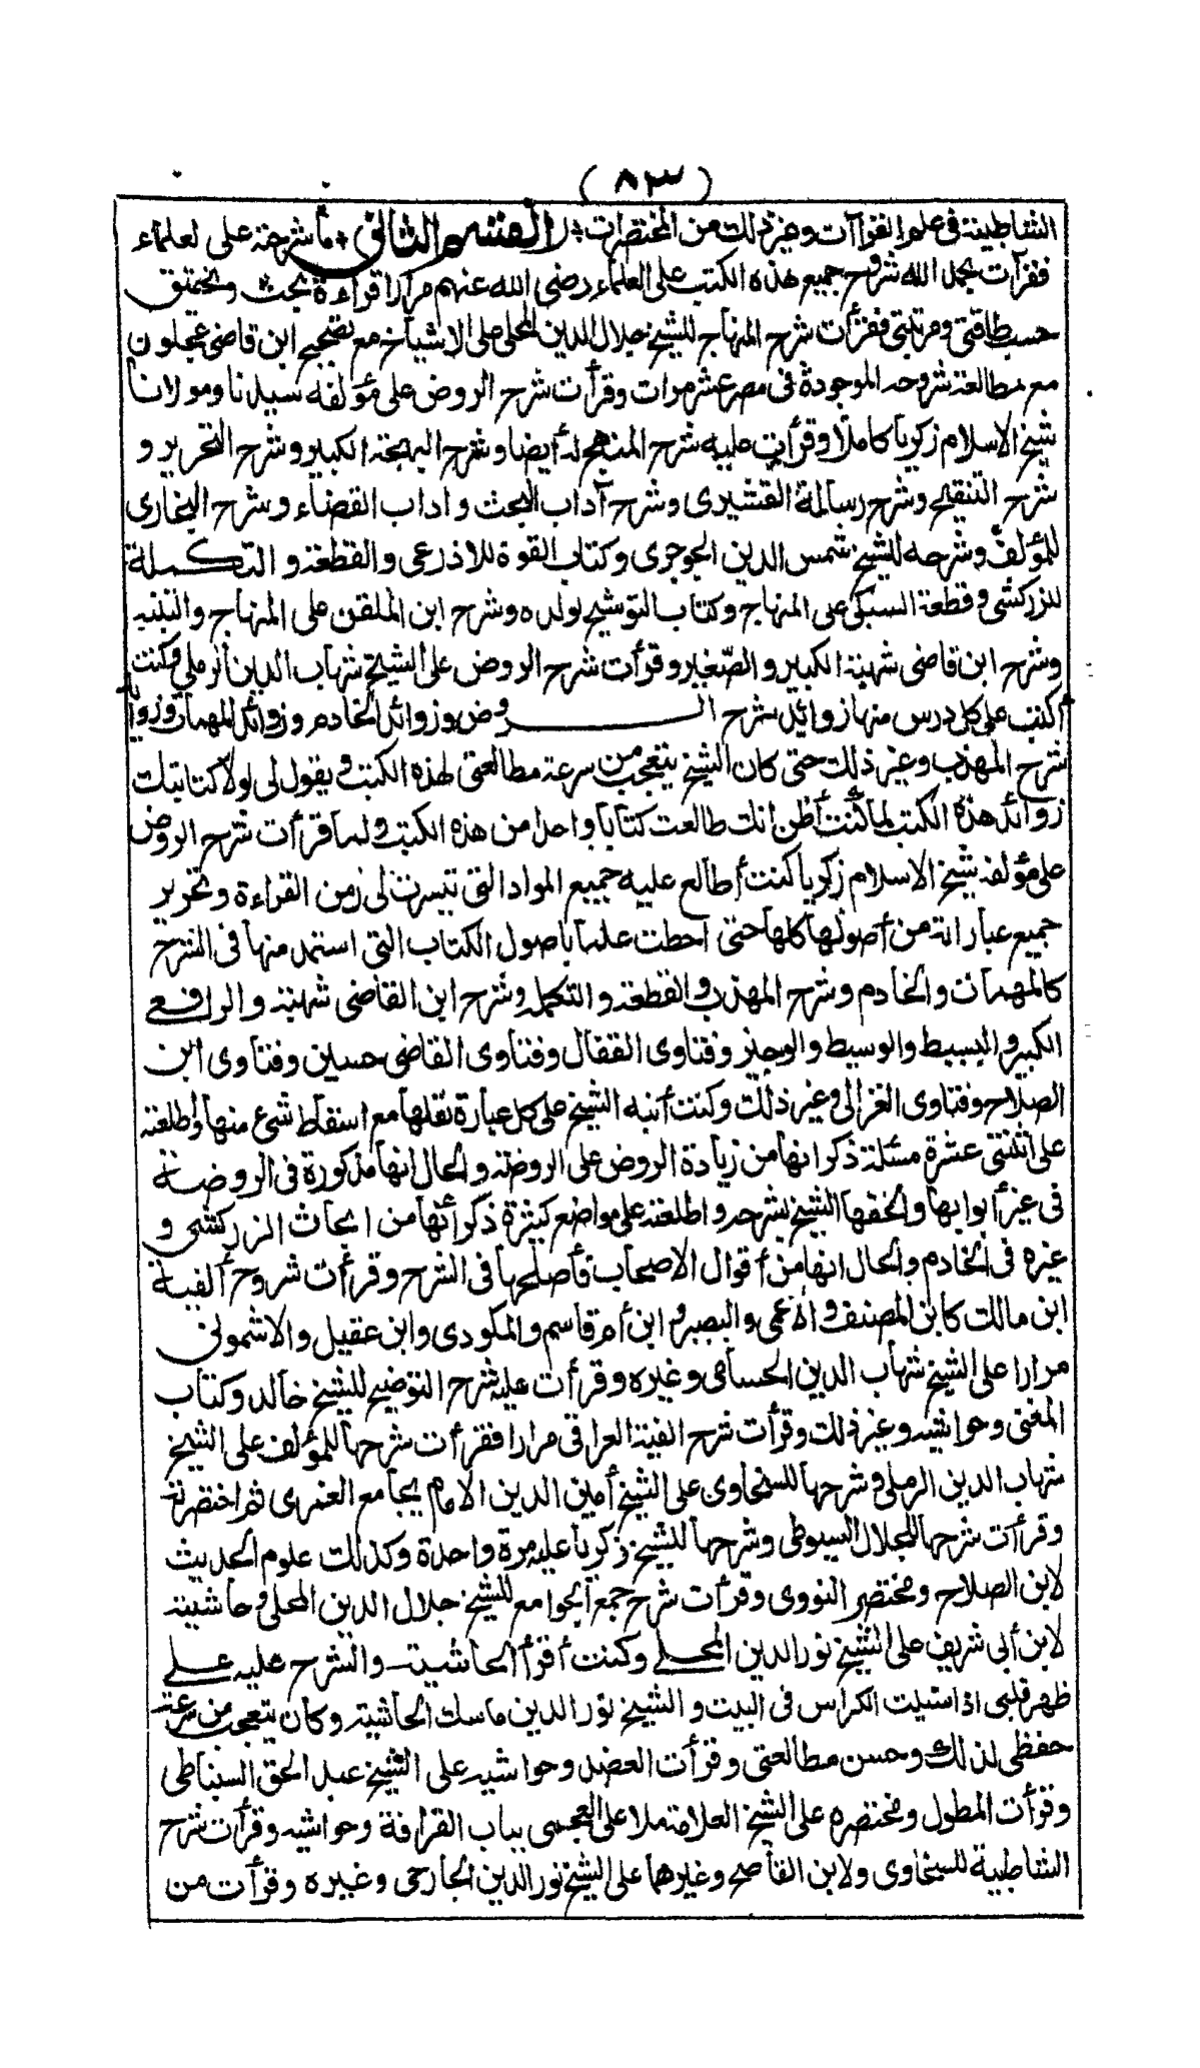 (٨٣)
الشاطبية فى علم القرآات وغير ذلك من المختصرات * القسم الثانى * ما شرحته على لعلماء
فقرأت بحمد الله شروح جميع هذه الكتب على العلماء رضى الله عنهم مرارا قراءة بحث وتحقيق
حسب طاقتى ومرتبتى فقرأت شرح المنهاج للشيخ جلال الدين المحلى على الاشياخ مع تصحيح ابن قاضى عجلون
مع مطالعة شروحه الموجودة فى مصر عشر مرات وقرأت شرح الروض على مؤلفه سيدنا ومولانا
شيخ الاسلام زكريا كاملا وقرأت عليه شرح المنهج له أيضا وشرح البهجة الكبير وشرح التحرير و
شرح التنقيح وشرح رسالة القشيرى وشرح آداب البحث و اداب القضاء وشرح البخارى
للمؤلف وشرحه للشيخ شمس الدين الجوجرى وكتاب القوة للاذرعى والقطعة و التكملة
للزركشى وقطعة السبكى على المنهاج وكتاب التوشيح لولده وشرح ابن الملقن على المنهاج والتنبيه
وشرح ابن قاضى شهبة الكبير و الصغير وقرأت شرح الروض على الشيخ شهاب الدين الرملى وكنت
أكتب على كل درس منها زوايد شرح الروض وزوائد الخادم وزوائد المهمات وزوائد
شرح المهذب وغير ذلك حتى كان الشيخ يتعجب من سرعة مطالعتى لهذه الكتب ويقول لى لولا كتابتك
زوائد هذه الكتب لما كنت أظن انك طالعت كتابا واحدا من هذه الكتب ولما قرأت شرح الروض
على مؤلفه شيخ الاسلام زكريا كنت أطالع عليه جميع المواد التى تيسرت لى زمن القراءة وتحرير
جميع عباراته من أصولها كلها حتى أحطت علما باصول الكتاب التى استمد منها فى الشرح
كالمهمات والخادم وشرح المهذب والقطعة و التكملة وشرح ابن القاضى شهبة و الرافعى
الكبير والبسيط والوسيط والوجيز وفتاوى القفال وفتاوى القاضى حسين وفتاوى ابن
الصلاح وفتاوى الغزالى وغير ذلك وكنت أنبه الشيخ على كل عبارة نقلها مع اسقاط شئ منها وأطلعته
على اثنتى عشرة مسئلة ذكر انها من زيادة الروض على الروضة والحال انها مذكورة فى الروضة
فى غير أبوابها وألحقها الشيخ بشرحه واطلعته على مواضع كثيرة ذكر أنها من ابحاث الزركشى و
غيره فى الخادم والحال انها من أقوال الاصحاب فأصلحها فى الشرح وقرأت شروح ألفية
ابن مالك كابن المصنف والاعمى والبصير و ابن أم قاسم والمكودى وابن عقيل والاشمونى
مرارا على الشيخ شهاب الدين الحسامى وغيره وقرأت عليه شرح التوضيح للشيخ خالد وكتاب
المغنى وحواشيه وغير ذلك وقرأت شرح الفية العراقى مرارا فقرأت شرحها للمؤلف على الشيخ
شهاب الدين الرملى وشرحها للسخاوى على الشيخ أمين الدين الامام بجامع الغمرى ثم اختصرته
وقرأت شرحها للجلال السيوطى وشرحها للشيخ زكريا عليه مرة واحدة وكذلك علوم الحديث
لابن الصلاح ومختصر النووى وقرأت شرح جمع الجوامع للشيخ جلال الدين المحلى وحاشيته
لابن أبى شريف على الشيخ نور الدين المحلى وكنت أقرأ الحاشية والشرح عليه على
ظهر قلبى اذا نسيت الكراس فى البيت و الشيخ نور الدين ماسك الحاشية وكان يتعجب من سرعة
حفظى لذلك وحسن مطالعتى وقرأت العضد وحواشيه على الشيخ عبد الحق السنباطى
وقرأت المطول ومختصره على الشيخ العلامة ملا على العجمى بباب القرافة وحواشيه وقرأت شرح
الشاطبية للسخاوى ولابن القاصح وغيرهما على الشيخ نور الدين الجارحى وغيره وقرأت من